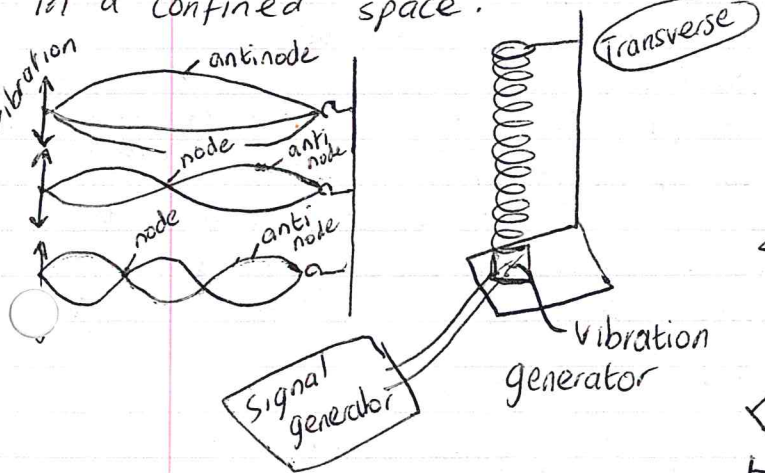 in a confined space.
Transverse
vibration
antinode
node
anti
node
node
anti
node
Vibration
generator
Signal
generator